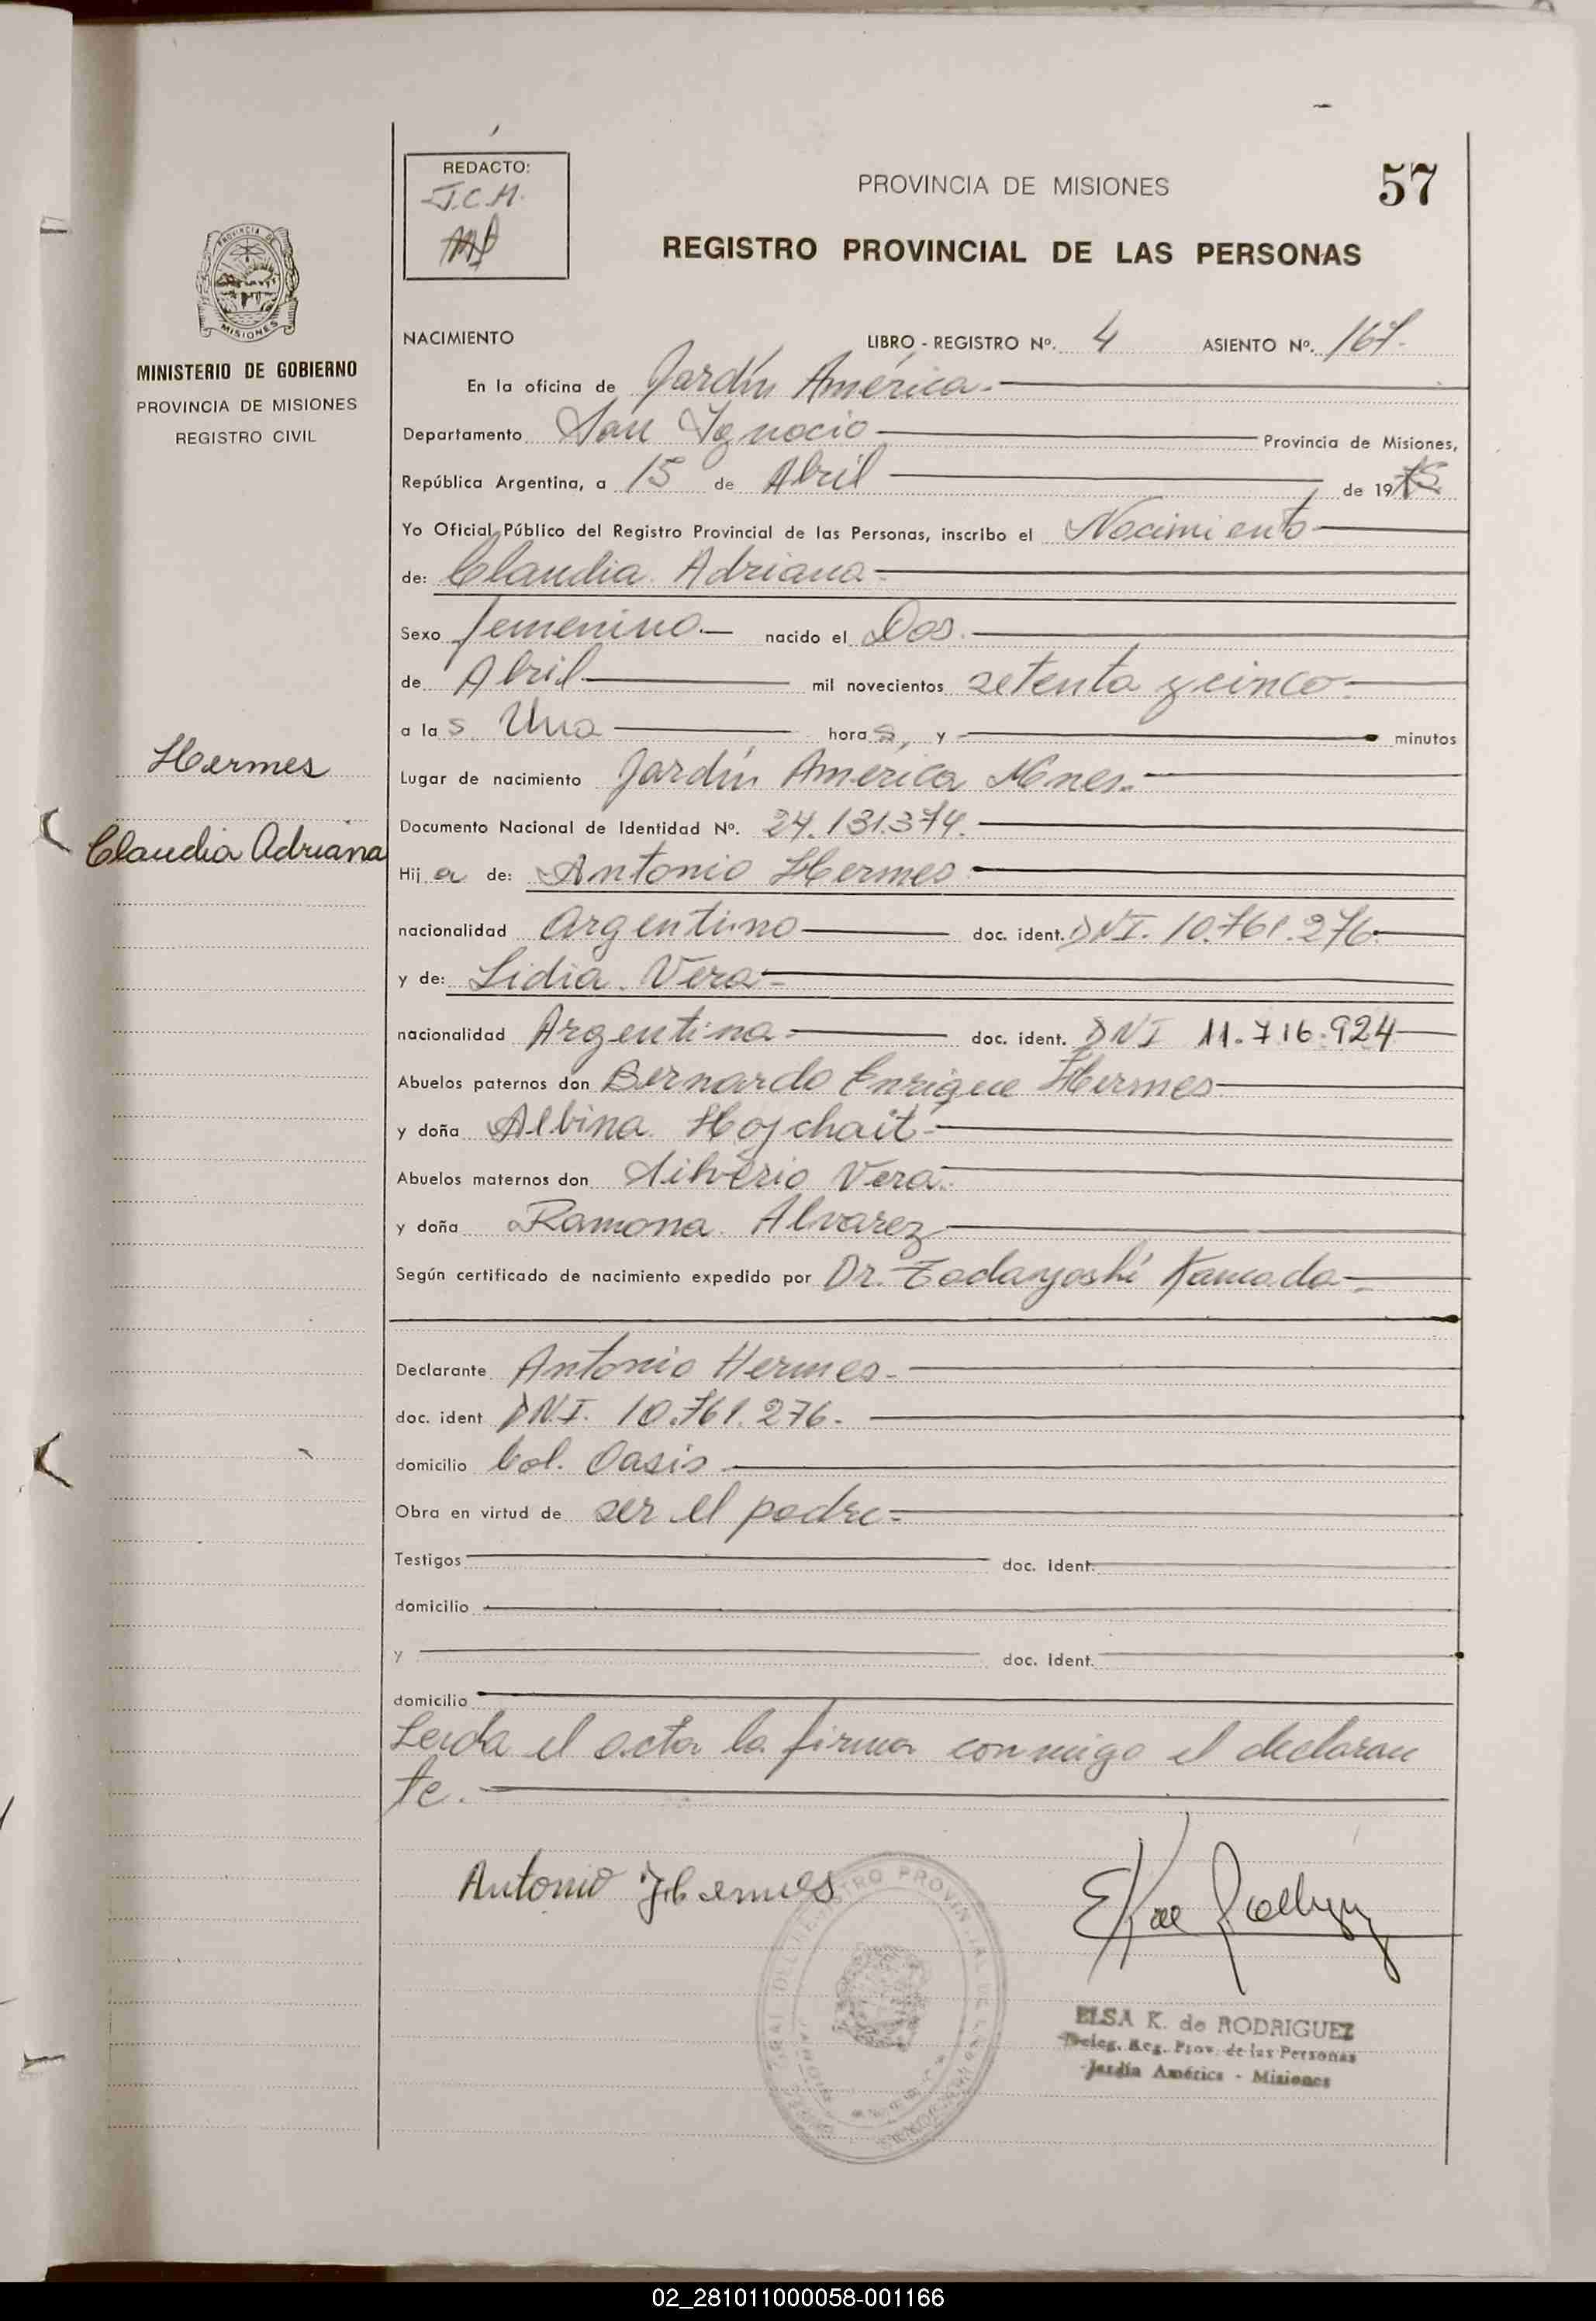 REDACTO:
J.C.M.
PROVINCIA DE MISIONES
57
REGISTRO PROVINCIAL DE LAS PERSONAS
PROVINCIA DE
MISIONES
MINISTERIO DE GOBIERNO
PROVINCIA DE MISIONES
REGISTRO CIVIL
Hermes
Claudia Adriana
NACIMIENTO LIBRO - REGISTRO Nº. 4 ASIENTO Nº. 167.
En la oficina de Jardín América.
Departamento San Ignacio Provincia de Misiones,
República Argentina, a 15 de Abril de 1975
Yo Oficial Público del Registro Provincial de las Personas, inscribo el Nacimiento
de: Claudia Adriana
Sexo femenino nacido el Dos.
de Abril mil novecientos setenta y cinco.
a las Una horas, y minutos
Lugar de nacimiento Jardín América Mnes.
Documento Nacional de Identidad Nº. 24.131.374.
Hija de: Antonio Hermes
nacionalidad argentino doc. ident. DNI. 10.761.276.
y de: Lidia Vera
nacionalidad Argentina doc. ident. DNI 11.716.924
Abuelos paternos don Bernardo Enrique Hermes
y doña Albina Hojchait
Abuelos maternos don Silverio Vera.
y doña Ramona Alvarez
Según certificado de nacimiento expedido por Dr. Tadayoshi Kamada
Declarante Antonio Hermes.
doc. ident DNI. 10.761.276.
domicilio Col. Oasis
Obra en virtud de ser el padre.
Testigos doc. ident.
domicilio
y doc. ident.
domicilio
Leida el acta la firma conmigo el declaran
te.
Antonio Hermes
ELSA K. de RODRIGUEZ
Deleg. Reg. Prov. de las Personas
Jardín América - Misiones
02_281011000058-001166